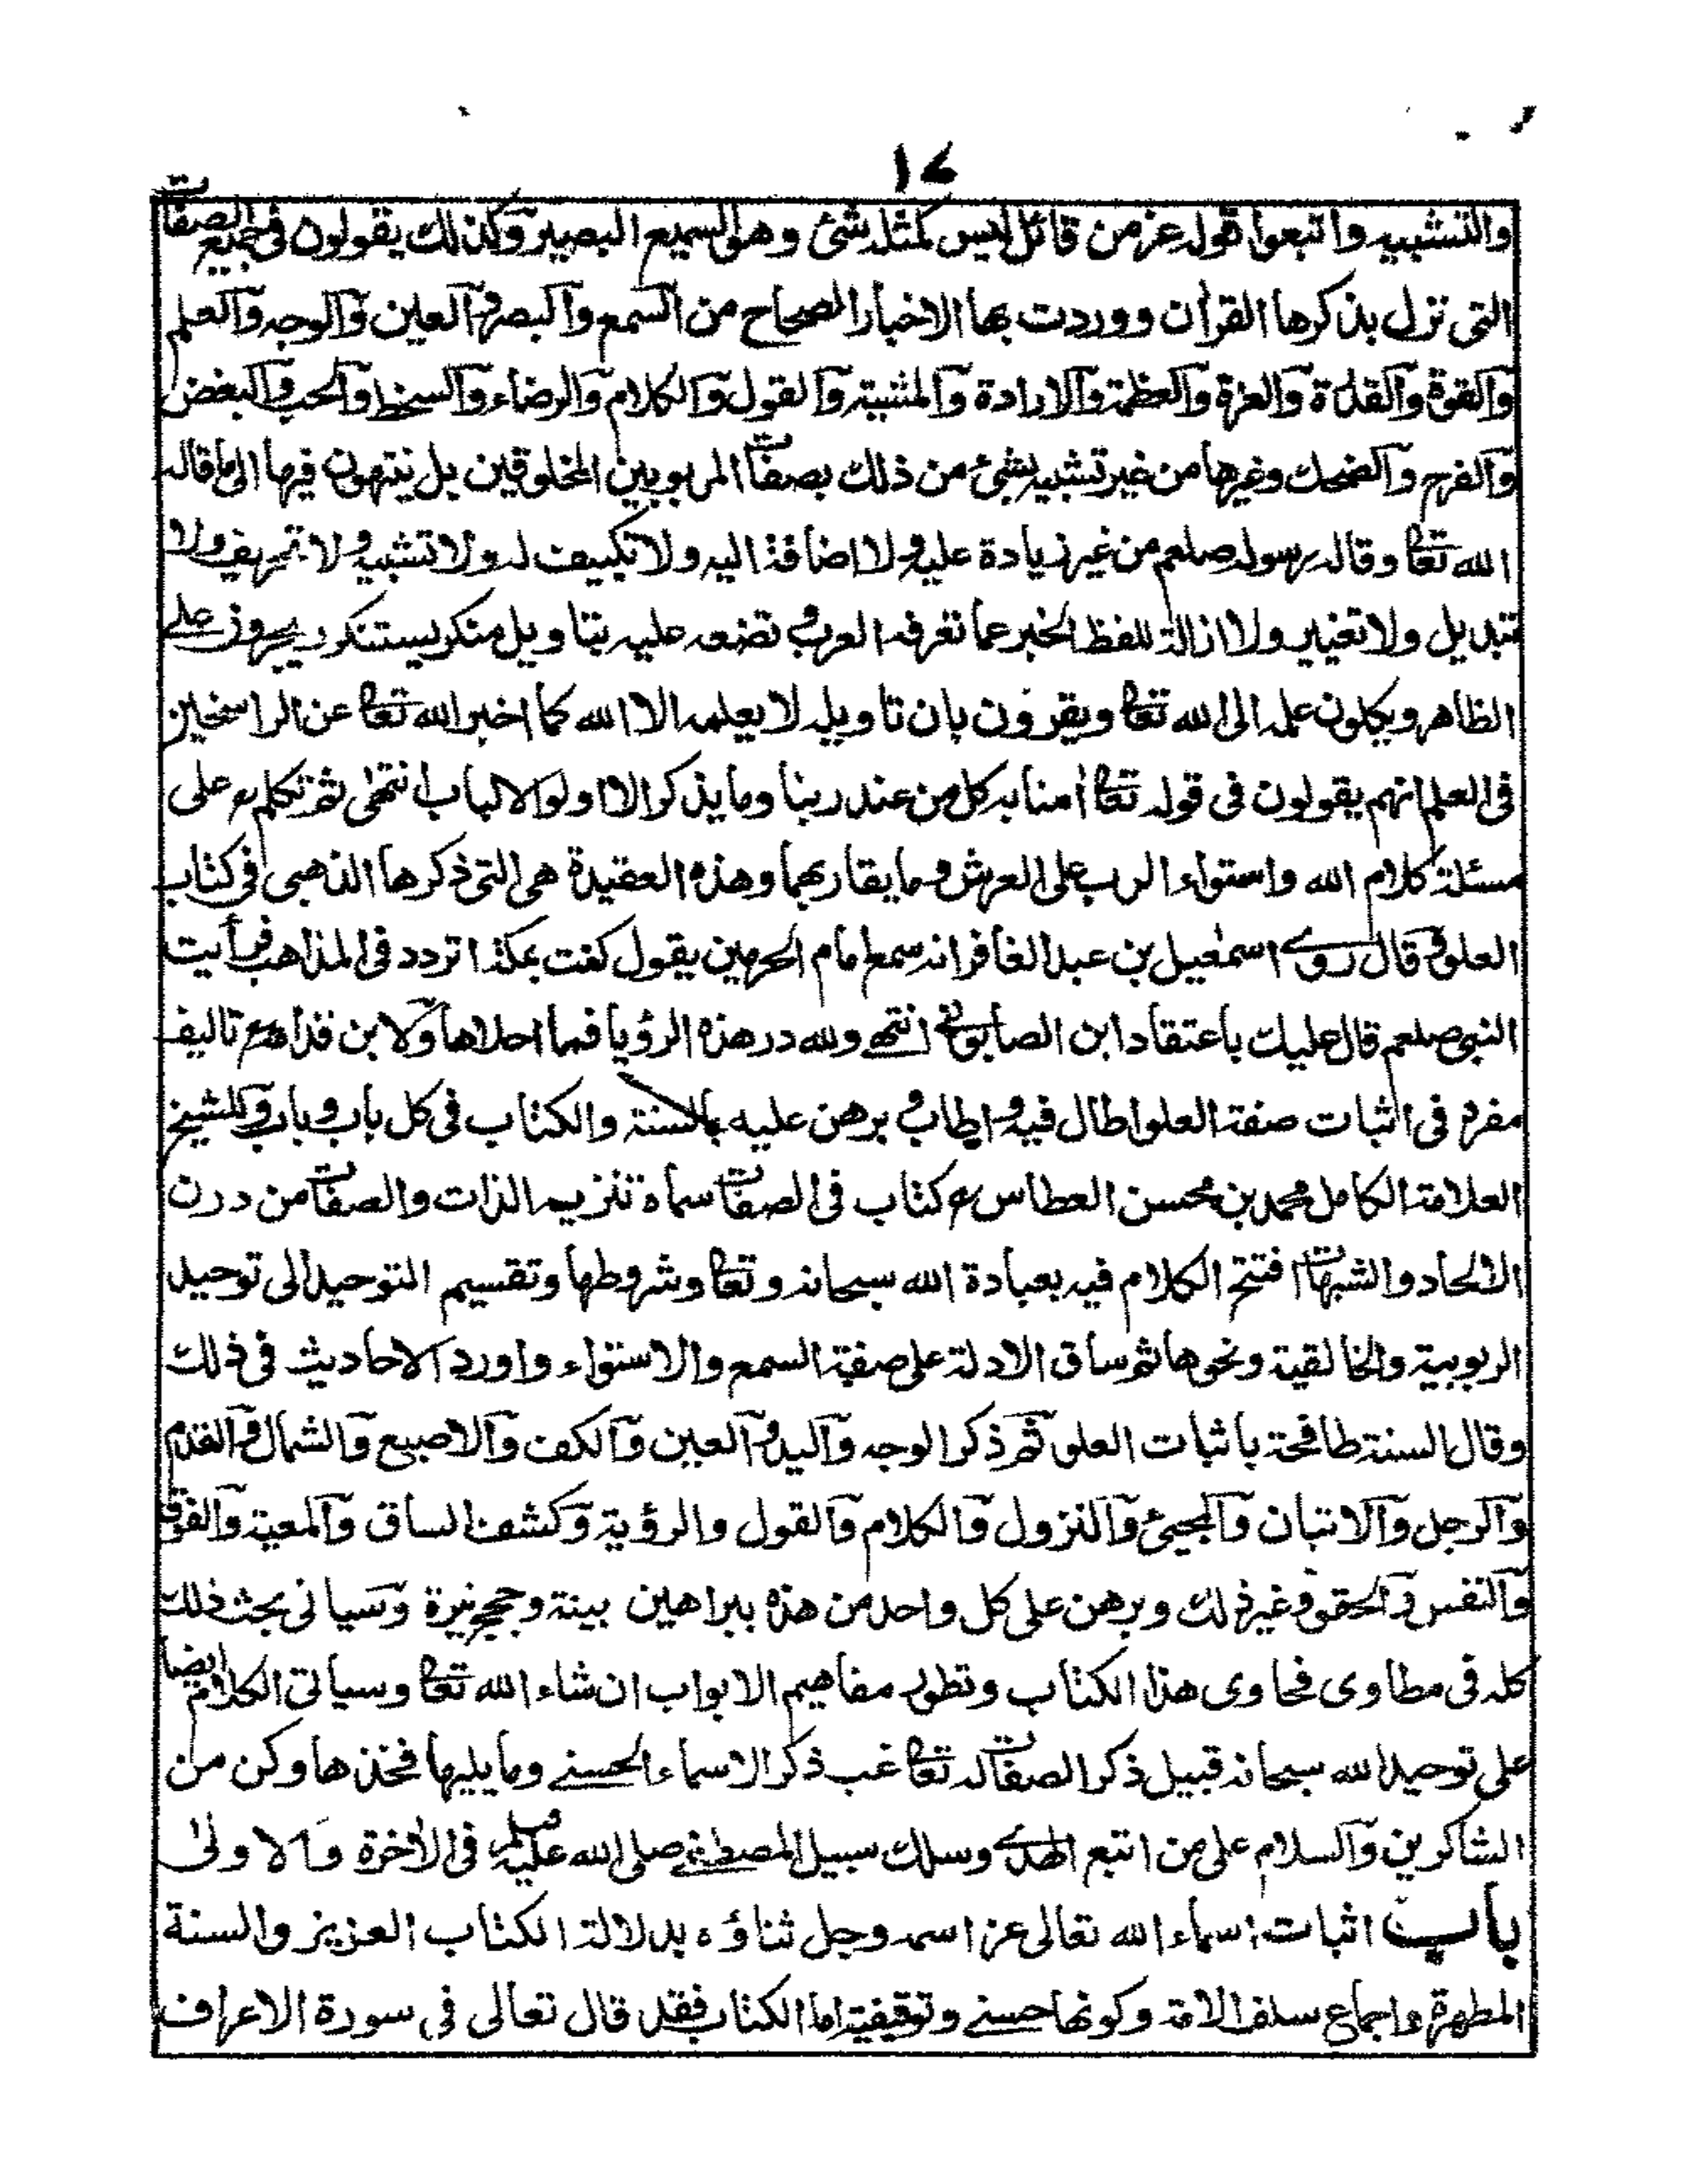 ١٤
والتشبيه واتبعوا قوله عز من قائل ليس كمثله شئ وهو السميع البصير وكذلك يقولون في جميع الصفات
التي نزل بذكرها القرآن ووردت بها الاخبار الصحاح من السمع والبصر والعين والوجه والعلم
والقوة والقدرة والعزة والعظمة والارادة والمشية والقول والكلام والرضاء والسخط والحب والبغض
والفرح والضحك وغيرها من غير تشبيه بشئ من ذلك بصفات المربوبين المخلوقين بل ينتهون فيها الى ما قاله
الله تعا وقاله رسوله صلعم من غير زيادة عليه ولا اضافة اليه ولا تكييف له ولا تشبيه ولا تحريف ولا
تبديل ولا تغيير ولا ازالة للفظ الخبر عما تعرفه العرب وتضعه عليه بتاويل منكر يستنكر ويجرون على
الظاهر ويكلون علمه الى الله تعا ويقرون بان تاويله لا يعلمه الا الله كما اخبر الله تعا عن الراسخين
في العلم انهم يقولون في قوله تعا اٰمنا به كل من عند ربنا وما يذكر الا اولوا الالباب انتهٰى ثم تكلم رح على
مسئلة كلام الله واستواء الرب على العرش وما يقاربهما وهذه العقيدة هي التي ذكرها الذهبي في كتاب
العلو وقال روى اسمٰعيل بن عبد الغافر انه سمع امام الحرمين يقول كنت بمكة اتردد في المذاهب فرأيت
النبي صلعم قال عليك باعتقاد ابن الصابوني انتهى ولله در هذه الرؤيا فما احلاها ولابن قدامة رح تاليف
مفرد في اثبات صفة العلو اطال فيه واطاب وبرهن عليه بالسنة والكتاب في كل باب وباب وللشيخ
العلامة الكامل محمد بن محسن العطاس رح كتاب في الصفات سماه تنزيه الذات والصفات من درن
الالحاد والشبهات افتتح الكلام فيه بعبادة الله سبحانه وتعا وشروطها وتقسيم التوحيد الى توحيد
الربوبية والخالقية ونحوها ثم ساق الادلة على صفة السمع والاستواء واورد الاحاديث في ذلك
وقال السنة طافحة باثبات العلو ثم ذكر الوجه واليد والعين والكف والاصبع والشمال والقدم
والرجل والاتيان والمجيئ والنزول والكلام والقول والرؤية وكشف الساق والمعية والفوق
والنفس والحقو وغير ذلك وبرهن على كل واحد من هذه ببراهين بينة وحجج نيرة وسياتى بحث ذلك
كله في مطاوى فحاوى هذا الكتاب وتطور مفاهيم الابواب ان شاء الله تعا وسياتي الكلام ايضا
على توحيد الله سبحانه قبيل ذكر الصفات له تعا غب ذكر الاسماء الحسنى وما يليها فخذها وكن من
الشاكرين والسلام على من اتبع الهدى وسلك سبيل المصطفى صلى الله عليه وسلم في الاٰخرة والاولىٰ
باب اثبات اسماء الله تعالى عز اسمه وجل ثناؤه بدلالة الكتاب العزيز والسنة
المطهرة واجماع سلف الامة وكونها حسنى وتوقيفية اما الكتاب فقد قال تعالى في سورة الاعراف